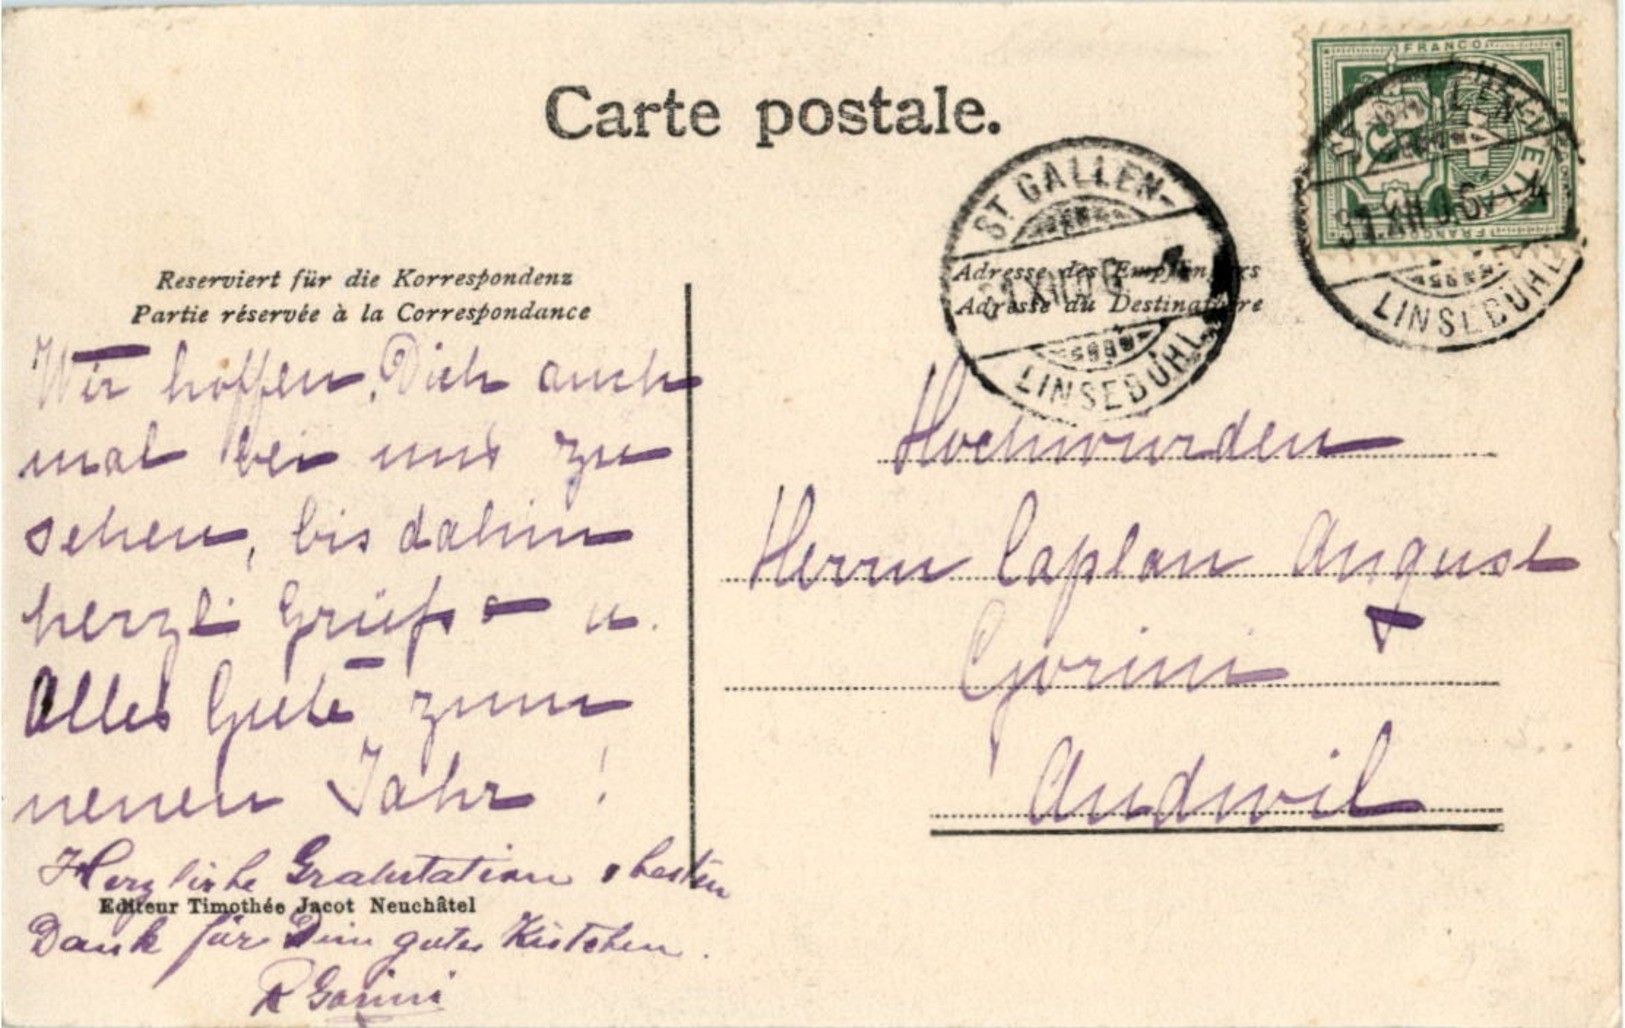 Carte postale.
FRANCO
HELVETIA
ST. GALLEN
31.XII.06. 4
LINSEBÜHL
ST. GALLEN-
31.XII.06
LINSEBÜHL
Reserviert für die Korrespondenz
Partie réservée à la Correspondance
Adresse des Empfängers
Adresse du Destinataire
Wir hoffen, Dich auch
mal bei uns zu
sehen, bis dahin
herzl. Grüße u.
Alles Gute zum
neuen Jahr!
Herzliche Gratulation u besten
Editeur Timothée Jacot Neuchâtel
Dank für Dein gutes Kistchen.
R Gorini
Hochwürden
Herrn Caplan August
Gorini
Andwil